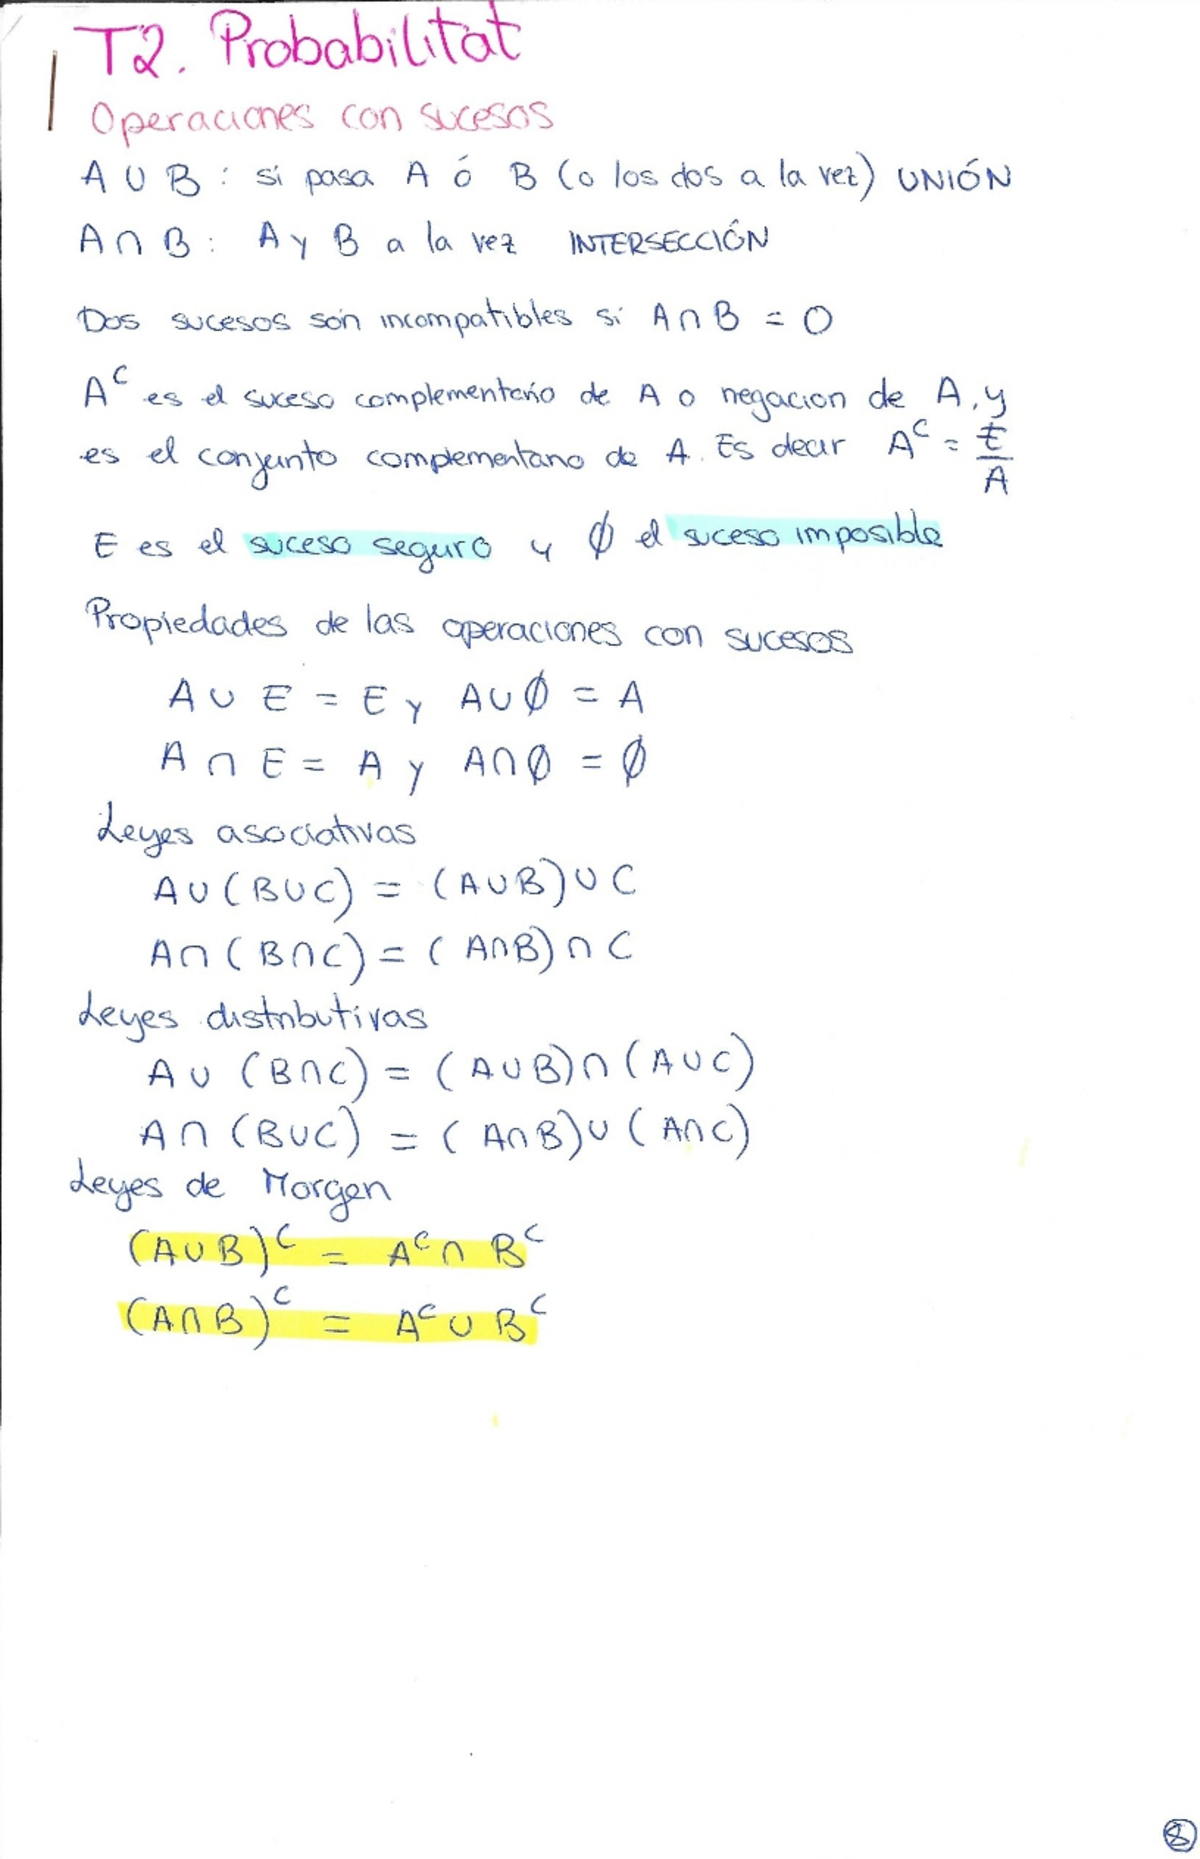 T2. Probabilitat
Operaciones con sucesos
A ∪ B : si pasa A ó B (o los dos a la vez) UNIÓN
A ∩ B : A y B a la vez INTERSECCIÓN
Dos sucesos son incompatibles si A ∩ B = O
A^C es el suceso complementario de A o negacion de A, y
es el conjunto complementario de A. Es decir A^C = E/A
E es el suceso seguro y ∅ el suceso imposible
Propiedades de las operaciones con sucesos
A ∪ E = E y A ∪ ∅ = A
A ∩ E = A y A ∩ ∅ = ∅
Leyes asociativas
A ∪ (B ∪ C) = (A ∪ B) ∪ C
A ∩ (B ∩ C) = (A ∩ B) ∩ C
Leyes distributivas
A ∪ (B ∩ C) = (A ∪ B) ∩ (A ∪ C)
A ∩ (B ∪ C) = (A ∩ B) ∪ (A ∩ C)
Leyes de Morgen
(A ∪ B)^C = A^C ∩ B^C
(A ∩ B)^C = A^C ∪ B^C
8